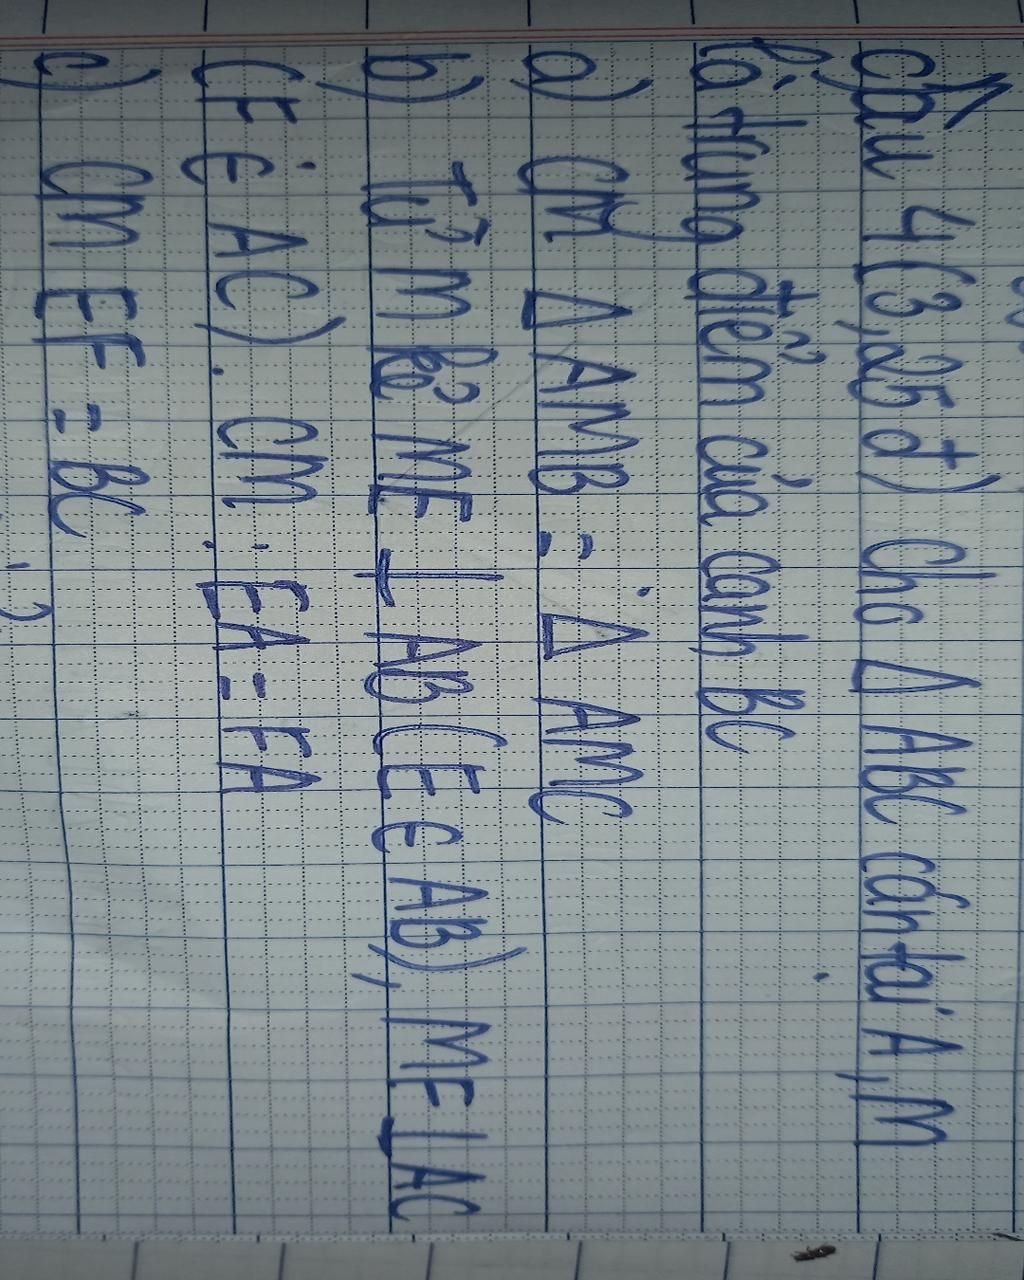 Câu 4 (3,25đ) Cho Δ ABC cân tại A, M
là trung điểm của cạnh BC
a) CM Δ AMB = Δ AMC
b) Từ M kẻ ME ⊥ AB (E ∈ AB), MF ⊥ AC
(F ∈ AC). CM : EA = FA
c) CM EF = BC